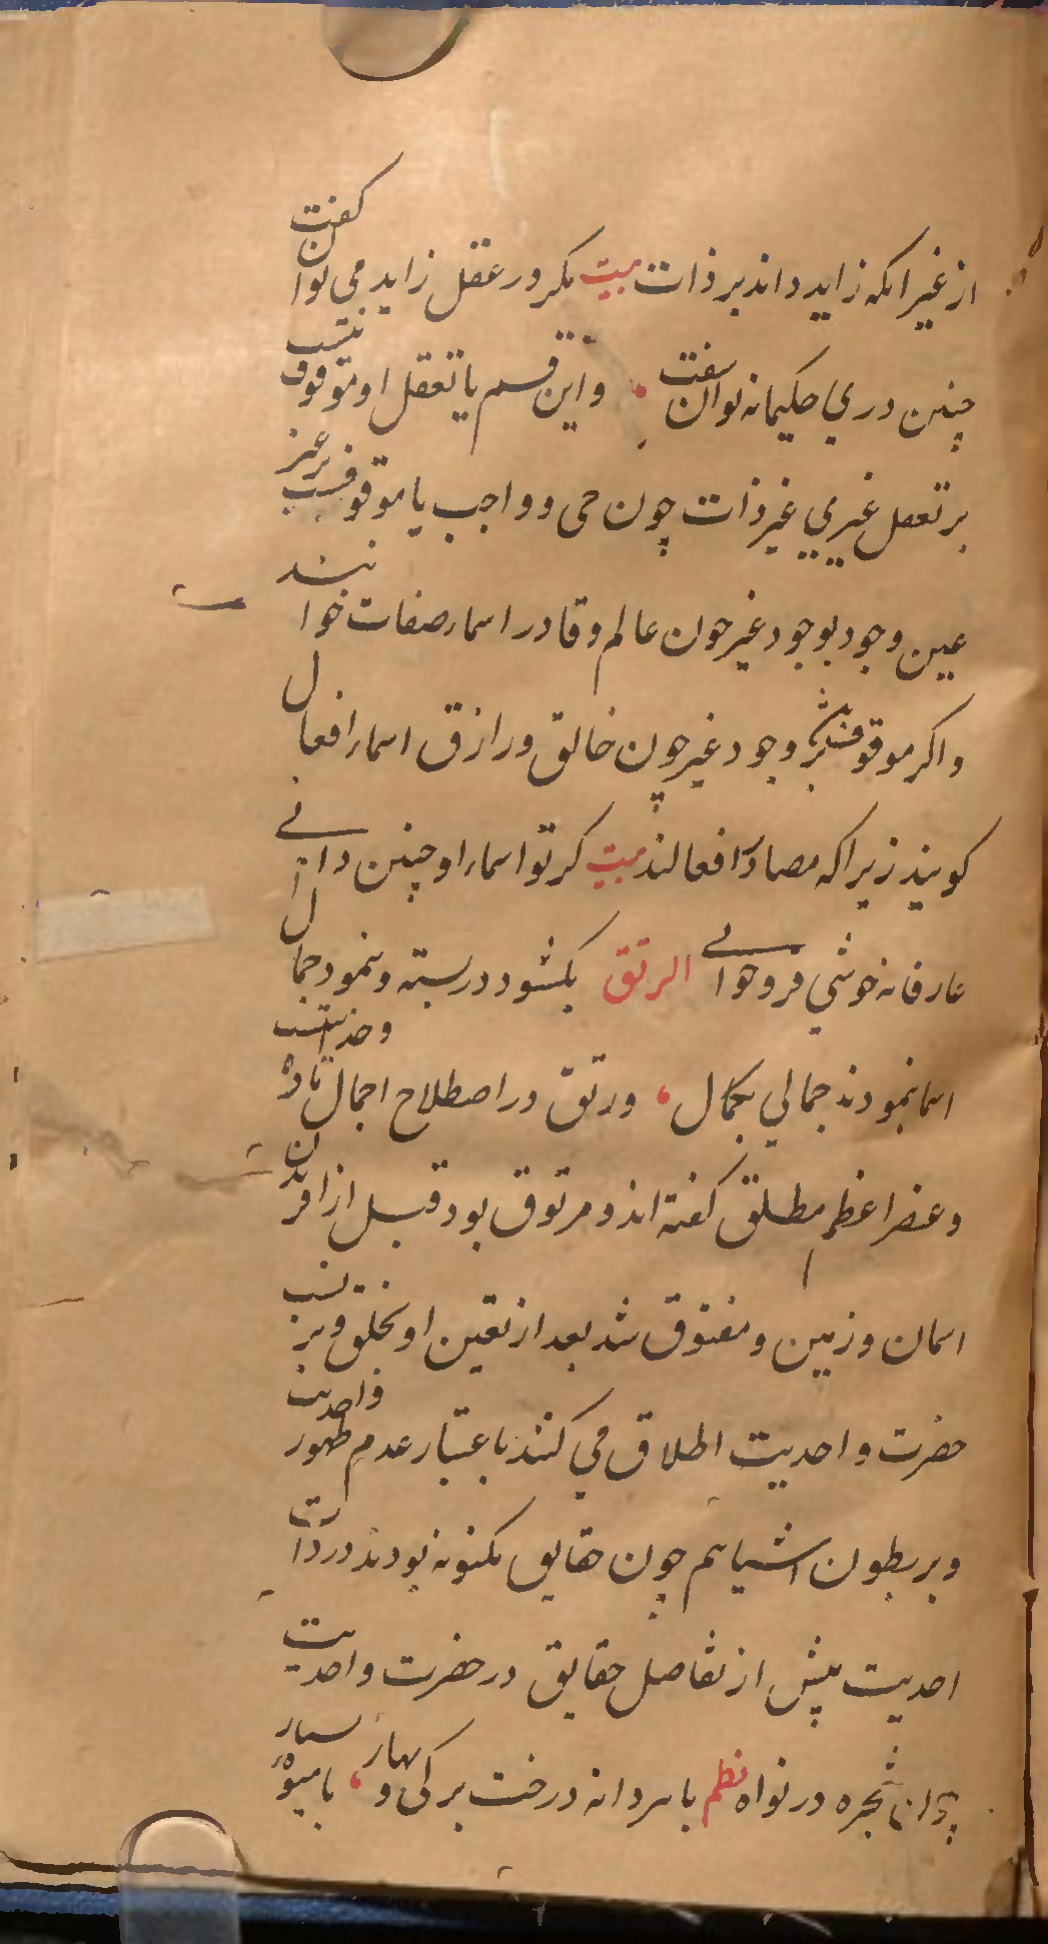 از غیر انکه زاید داند بر ذات بیت بکر در عقل زاید می توان گفت
چنین دری حکیمانه توان سفت و این قسم یا تعقل او موقوف نیست
بر تعقل غیری غیر ذات چون حی و واجب یا موقوفست بر غیر
عین وجود بوجود غیر چون عالم و قادر اسماء صفات خوانند
و اکر موقوفند بر وجود غیر چون خالق و رازق اسماء افعال
کویند زیرا که مصادر افعالند بیت کر تو اسماء او چنین دانی
عارفانه خوشی فرو خوانی الرتق بکشود در بسته و بنمود جمال
اسما بنمودند جمالی بکمال ورتق در اصطلاح اجمال ماده وحدانیتست
و عنصر اعظم مطلق کفته اند و مرتوق بود قبل از افریدن
اسمان و زمین و مفتوق شد بعد از تعین او بخلق و بر نسب
حضرت واحدیت اطلاق می کنند باعتبار عدم ظهور واحدیت
و بر بطون اشیا هم چون حقایق مکنونه بودند در ذات
احدیت پیش از تفاصل حقایق در حضرت واحدیت
چون شجره در نواه نظم با هر دانه درخت برکی و بهار با میوه بسیار